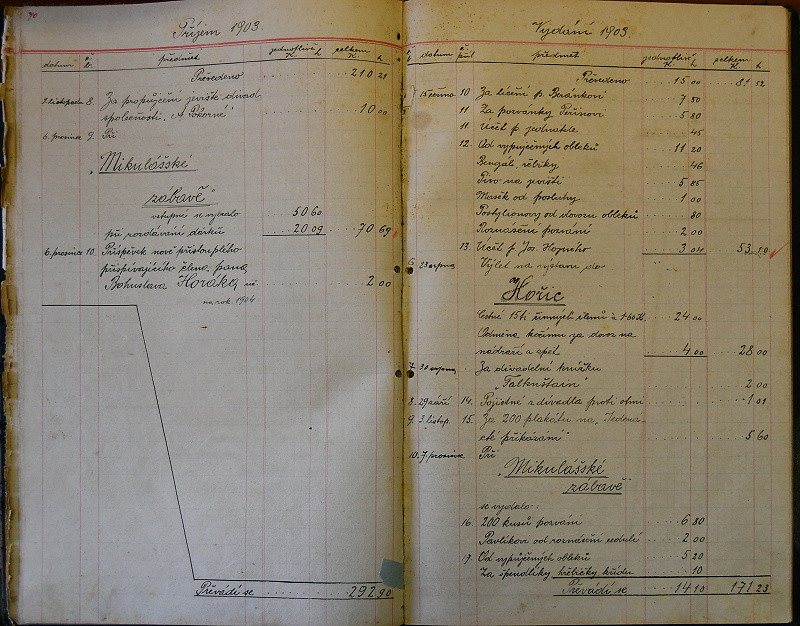 Příjem 1903.
datum č. b. předmět jednotlivě K. h celkem K. h
Přenedeno 210 21
1. listopadu 8. Za propůjčení jeviště divad.
společnosti. A Pokorné 10 00
6. prosince 9. Při
"Mikulášské
zábavě"
vstupné se vybralo 50 60
při rozdávání dárků 20 09 70 69
6. prosince 10. Příspěvek nově přistouplého
přispívajícího člena, pana
Bohuslava Horáka, uč.
na rok 1904 2 00
Převádí se 292 90
Vydání 1903.
datum předmět jednotlivě K. h celkem K. h
Přenedeno 15 00 81 52
15 června 10 Za líčení p. Beránkovi 7 50
11 Za pozvánky Peřinovi 5 80
11. Účet p. jednatele 45
12. Od vypůjčených obleků 11 20
Bengál. 46
Pivo na jevišti 5 85
Masek od posluhy 1 00
od dovozu obleků 80
Roznášení pozvání 2 00
13. Účet p. Jos. 3 04 53
6. 23 srpna Výlet na výstavu do
Hořic
Cestné 15ti činných členů à 1·60 K. 24 00
Odměna kočímu za dovoz na
nádraží a zpět 4 00 28 00
7. 30 srpna Za divadelní knížku
"Falkenštein" 2 00
8. 29 září 14. Pojistné z divadla proti ohni 1 01
9. 3. listop. 15. Za 200 plakátů na "Jedená-
cté přikázání" 5 60
10. 7. prosince Při
"Mikulášské
zábavě"
se vydalo:
16. 200 kusů pozvání 6 80
Pavlíkovi od roznášení cedulí 2 00
17. Od vypůjčených obleků 5 20
Za špendlíky, hřebíčky, křídu 10
Převádí se 14 10 171 23